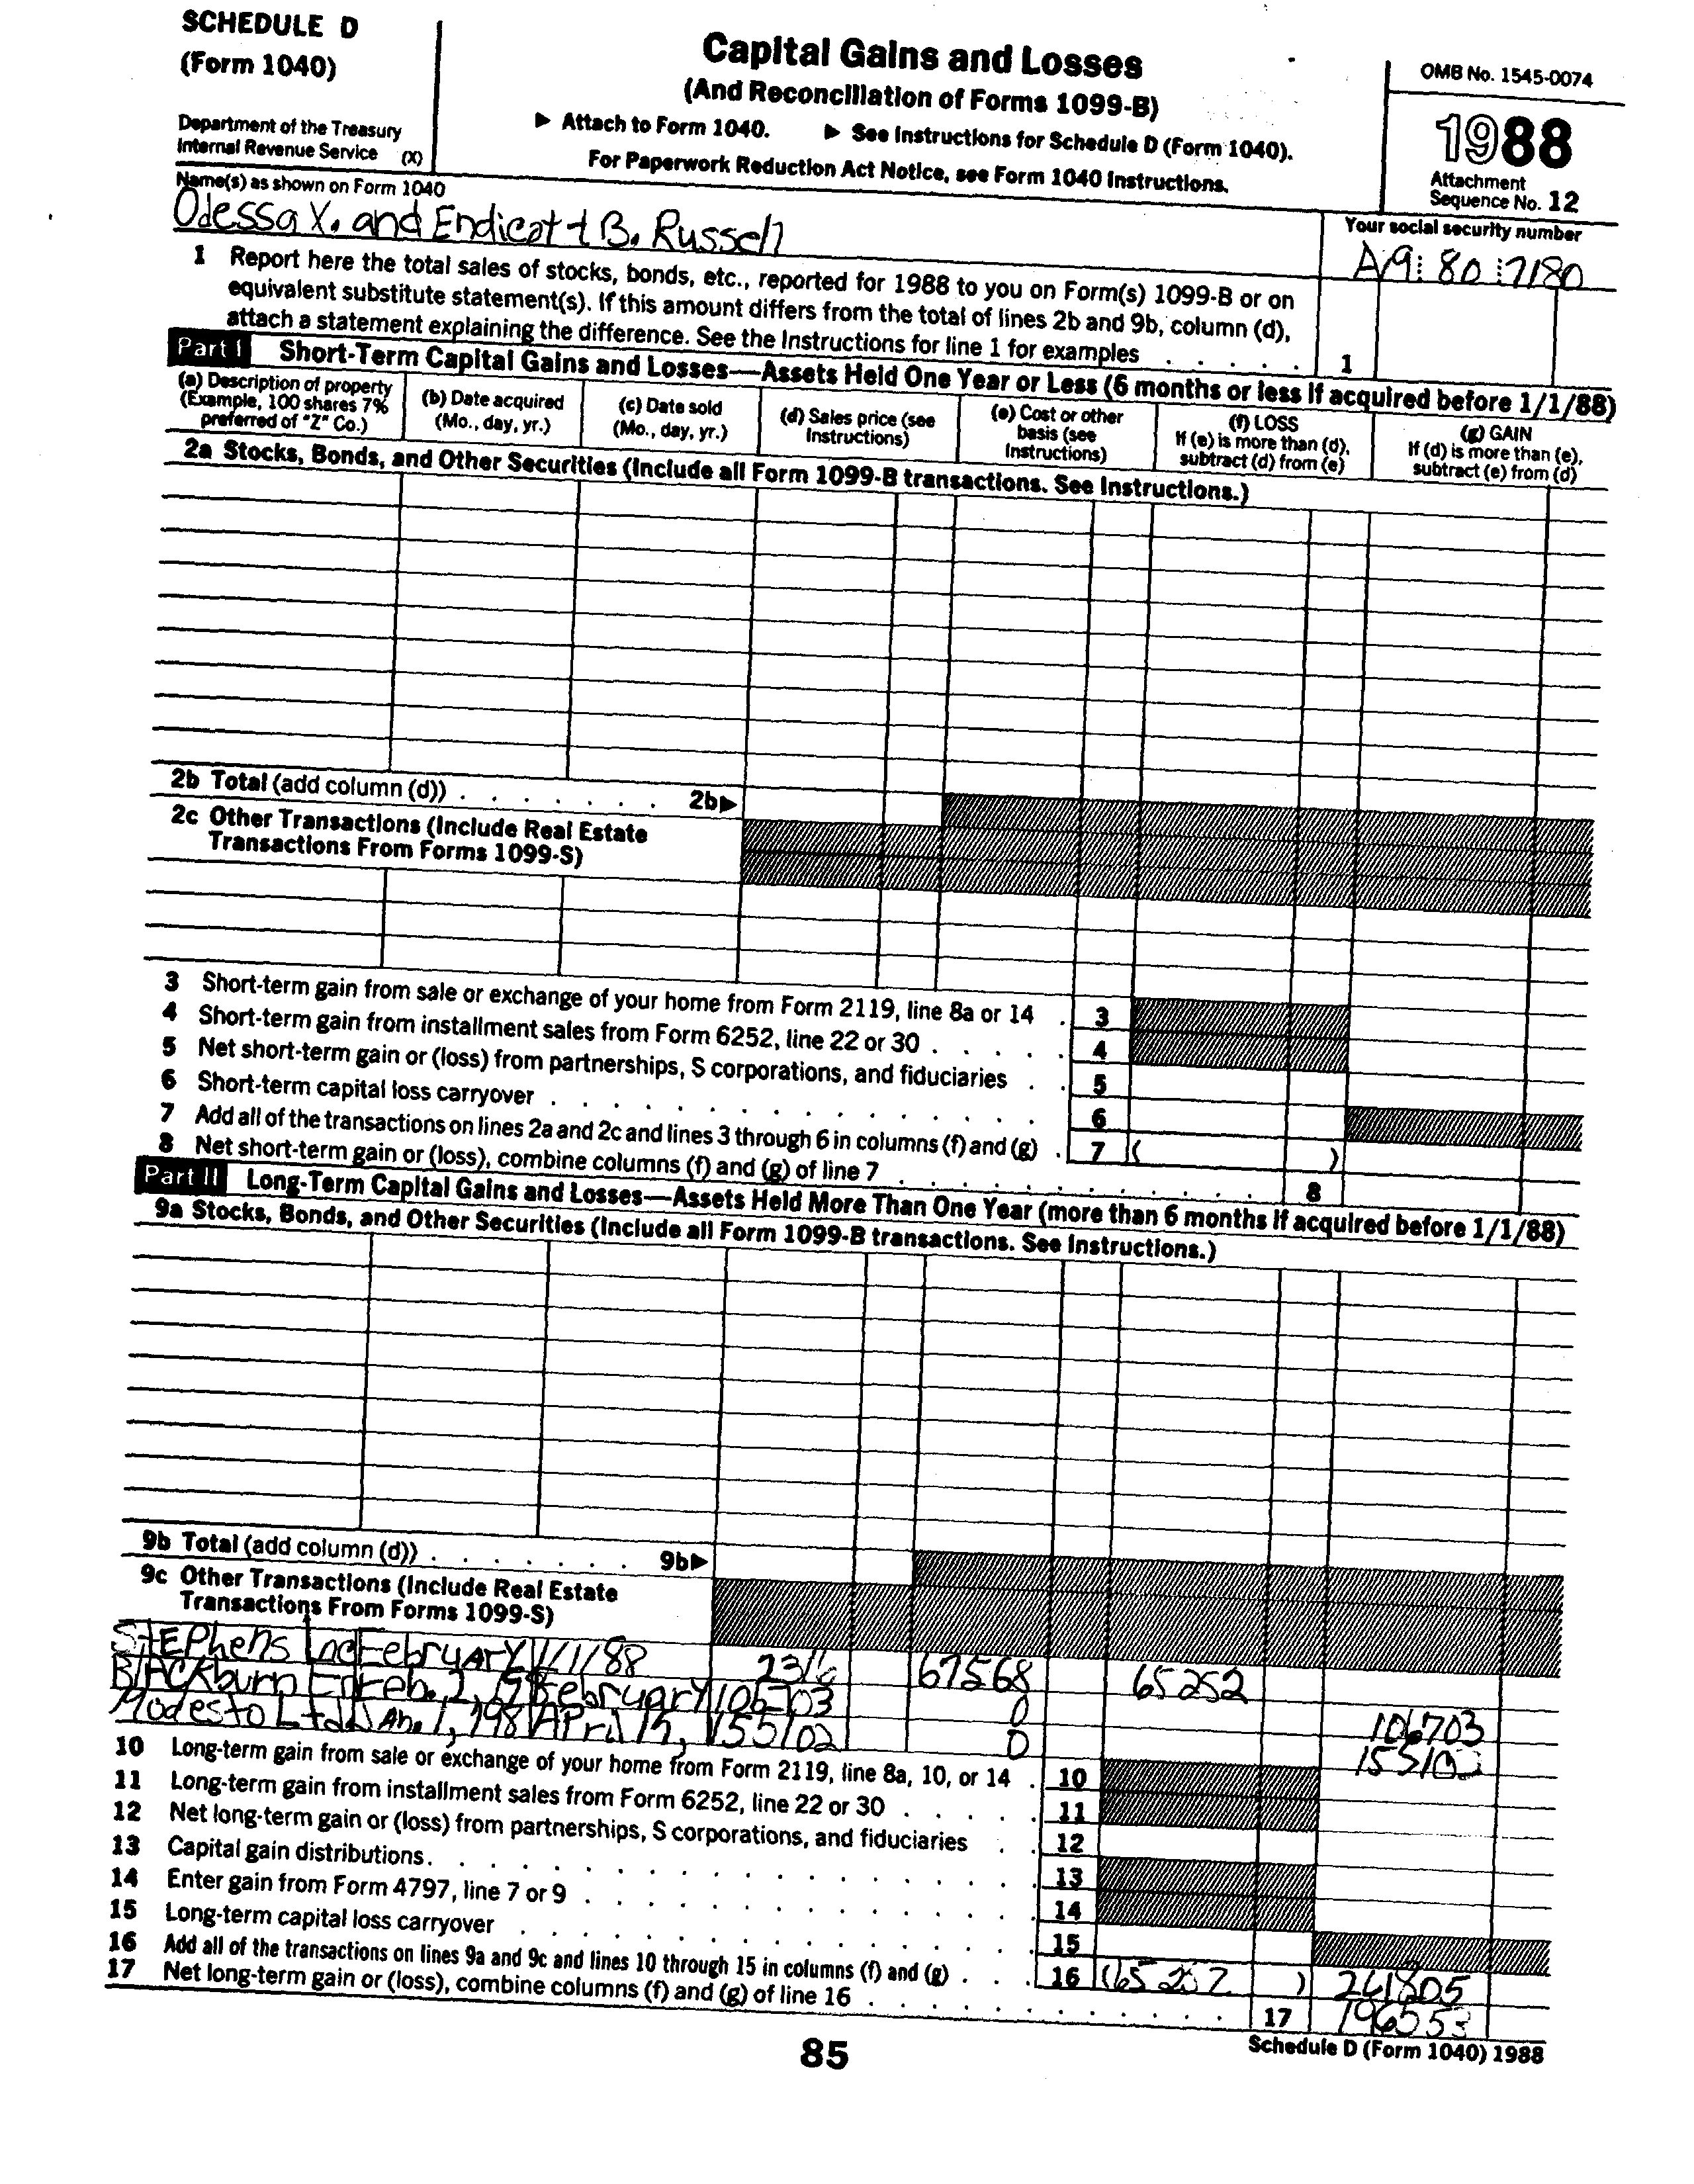 SCHEDULE D
(Form 1040)
Department of the Treasury
Internal Revenue Service (X)
Capital Gains and Losses
(And Reconciliation of Forms 1099-B)
▶ Attach to Form 1040. ▶ See Instructions for Schedule D (Form 1040).
For Paperwork Reduction Act Notice, see Form 1040 Instructions.
OMB No. 1545-0074
1988
Attachment
Sequence No. 12
Name(s) as shown on Form 1040
Odessa X. and Endicott B. Russell
Your social security number
A19 80 7180
1 Report here the total sales of stocks, bonds, etc., reported for 1988 to you on Form(s) 1099-B or on
equivalent substitute statement(s). If this amount differs from the total of lines 2b and 9b, column (d),
attach a statement explaining the difference. See the Instructions for line 1 for examples . . . . . 1
Part I Short-Term Capital Gains and Losses—Assets Held One Year or Less (6 months or less if acquired before 1/1/88)
(a) Description of property
(Example, 100 shares 7%
preferred of "Z" Co.)
(b) Date acquired
(Mo., day, yr.)
(c) Date sold
(Mo., day, yr.)
(d) Sales price (see
Instructions)
(e) Cost or other
basis (see
Instructions)
(f) LOSS
If (e) is more than (d),
subtract (d) from (e)
(g) GAIN
If (d) is more than (e),
subtract (e) from (d)
2a Stocks, Bonds, and Other Securities (Include all Form 1099-B transactions. See Instructions.)
2b Total (add column (d)) . . . . . . . 2b▶
2c Other Transactions (Include Real Estate
Transactions From Forms 1099-S)
3 Short-term gain from sale or exchange of your home from Form 2119, line 8a or 14 . 3
4 Short-term gain from installment sales from Form 6252, line 22 or 30 . . . . . 4
5 Net short-term gain or (loss) from partnerships, S corporations, and fiduciaries . . 5
6 Short-term capital loss carryover . . . . . . . . . . . . . . . . 6
7 Add all of the transactions on lines 2a and 2c and lines 3 through 6 in columns (f) and (g) . 7 ( )
8 Net short-term gain or (loss), combine columns (f) and (g) of line 7 . . . . . . . . . . . . 8
Part II Long-Term Capital Gains and Losses—Assets Held More Than One Year (more than 6 months if acquired before 1/1/88)
9a Stocks, Bonds, and Other Securities (Include all Form 1099-B transactions. See Instructions.)
9b Total (add column (d)) . . . . . . . 9b▶
9c Other Transactions (Include Real Estate
Transactions From Forms 1099-S)
Stephens Inc February 1/1/88 2316 67568 65252
Blackburn Feb. 2, February 106703 0 106703
Modesto Ltd Jan. 1, 198 April 155102 0 155102
10 Long-term gain from sale or exchange of your home from Form 2119, line 8a, 10, or 14 . 10
11 Long-term gain from installment sales from Form 6252, line 22 or 30 . . . . . 11
12 Net long-term gain or (loss) from partnerships, S corporations, and fiduciaries . . 12
13 Capital gain distributions. . . . . . . . . . . . . . . . . . 13
14 Enter gain from Form 4797, line 7 or 9 . . . . . . . . . . . . . . 14
15 Long-term capital loss carryover . . . . . . . . . . . . . . . . 15
16 Add all of the transactions on lines 9a and 9c and lines 10 through 15 in columns (f) and (g) . . . 16 (65252 ) 261805
17 Net long-term gain or (loss), combine columns (f) and (g) of line 16 . . . . . . . . . . . . 17 196553
85
Schedule D (Form 1040) 1988